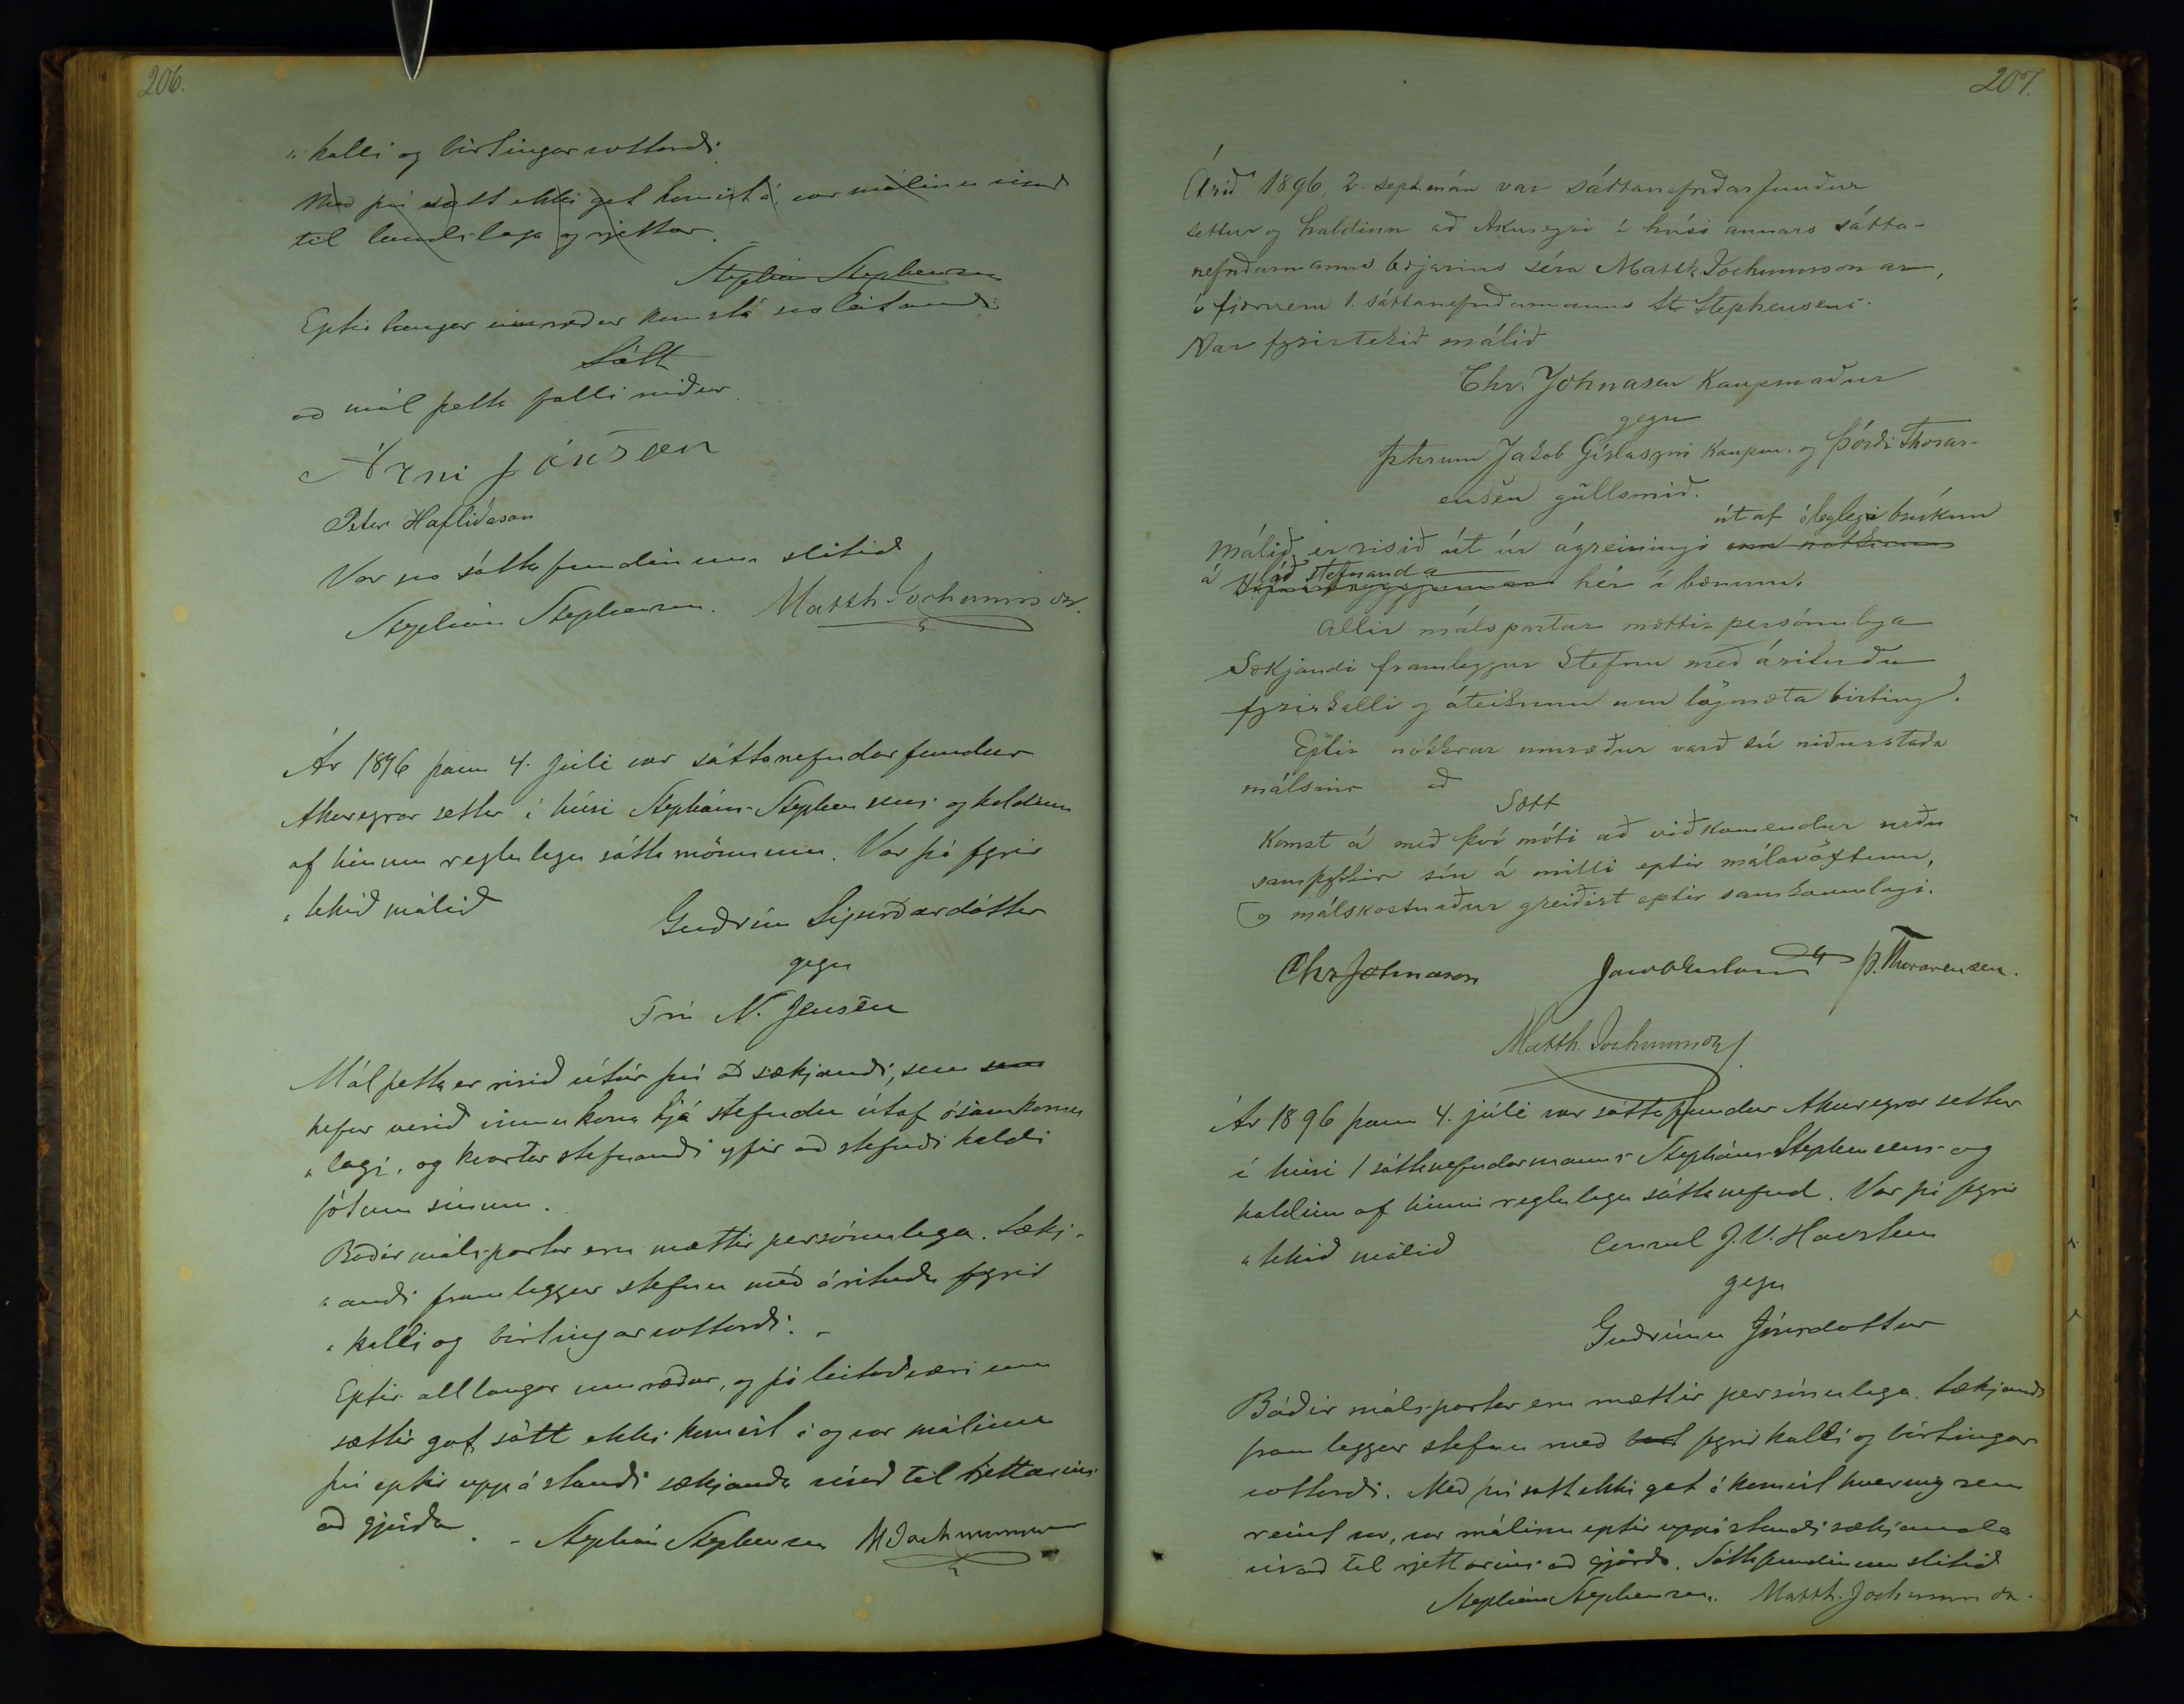 206.
„kalli og birtingarvottorði.
Með því sátt ekki gat komist á, var málinu vísað
til landslaga og rjettar.
Stephán Stephensen
Eptir langar umræður komst á svolátandi
Sátt
að mál þetta falli niður.
Árni Jónsson
Peter Hafliðason
Var svo sáttafundinum slitið
Stephán Stephensen. Matth. Jochumsson.
Ár 1896 þann 4. júlí var sáttanefndarfundur
Akureyrar settur í húsi Stepháns Stephensens og haldinn
af hinum reglulegu sáttamönnum. Var þá fyrir
„tekið málið
Guðrún Sigurðardóttir
gegn
Frú N. Jensen
Mál þetta er risið útúr því að sækjandi, sem sem
hefur verið innukona hjá stefndu útaf ósamkomu
„lagi, og kvartar stefnandi yfir að stefndi haldi
fötum sínum.
Báðir málspartar eru mættir persónulega. Sækj-
„andi framleggur stefnu með árituðu fyrir
„kalli og birtingarvottorði. -
Eptir all langar umræður, og þó leitað væri um
sættir gat sátt ekki komist á og var málinu
því eptir uppástandi sækjanda vísað til rjettarins
að gjörða. - Stephán Stephensen M Jochumsson
207.
Árið 1896, 2. sept.mán var sáttanefndarfundur
settur og haldinn að Akureyri í húsi annars sátta-
nefndarmanns bæjarins séra Matth. Jochumssonar,
í fjærveru 1. sáttanefndarmanns St. Stephensens.
Var fyrirtekið málið
Chr. Johnasen Kaupmaður
gegn
þeim Jakob Gíslasyni kaupm. og Þórði Thorar-
ensen gullsmið.
út af óleglegri brúkun
Málið er risið út úr ágreiningi um notkun
á lóð stefnanda
hér í bænum.
Allir málspartar mættir persónulega
Sækjandi framleggur Stefnu með árituðu
fyrirkalli og áteiknun um lögmæta birting.
Eptir nokkrar umræður varð sú niðurstaða
málsins að
Sætt
komst á með því móti að viðkomendur urðu
samþykkir sín á milli eptir málavöxtum,
og málskostnaður greiðist eptir samkomulagi.
Chr Johnasson Jacob Gíslason Þ. Thorarensen.
Matth. Jochumsson
Ár 1896 þann 4. júlí var sáttafundur Akureyrar settur
í húsi 1 sáttanefndarmanns Stepháns Stephensens og
haldinn af hinni reglulegu sáttanefnd. Var þá fyrir
„tekið málið Consul J. V. Havsteen
gegn
Guðrúnu Jónsdóttur
Báðir málspartar eru mættir persónulega. Sækjandi
framleggur stefnu með fyrirkalli og birtingar
vottorði. Með því sátt ekki gat á komist hvernig sem
reint var, var málinu eptir uppástandi sækjanda
vísað til rjettarins að gjörða. Sáttafundinum slitið
Stephán Stephensen. Matth. Jochumsson.